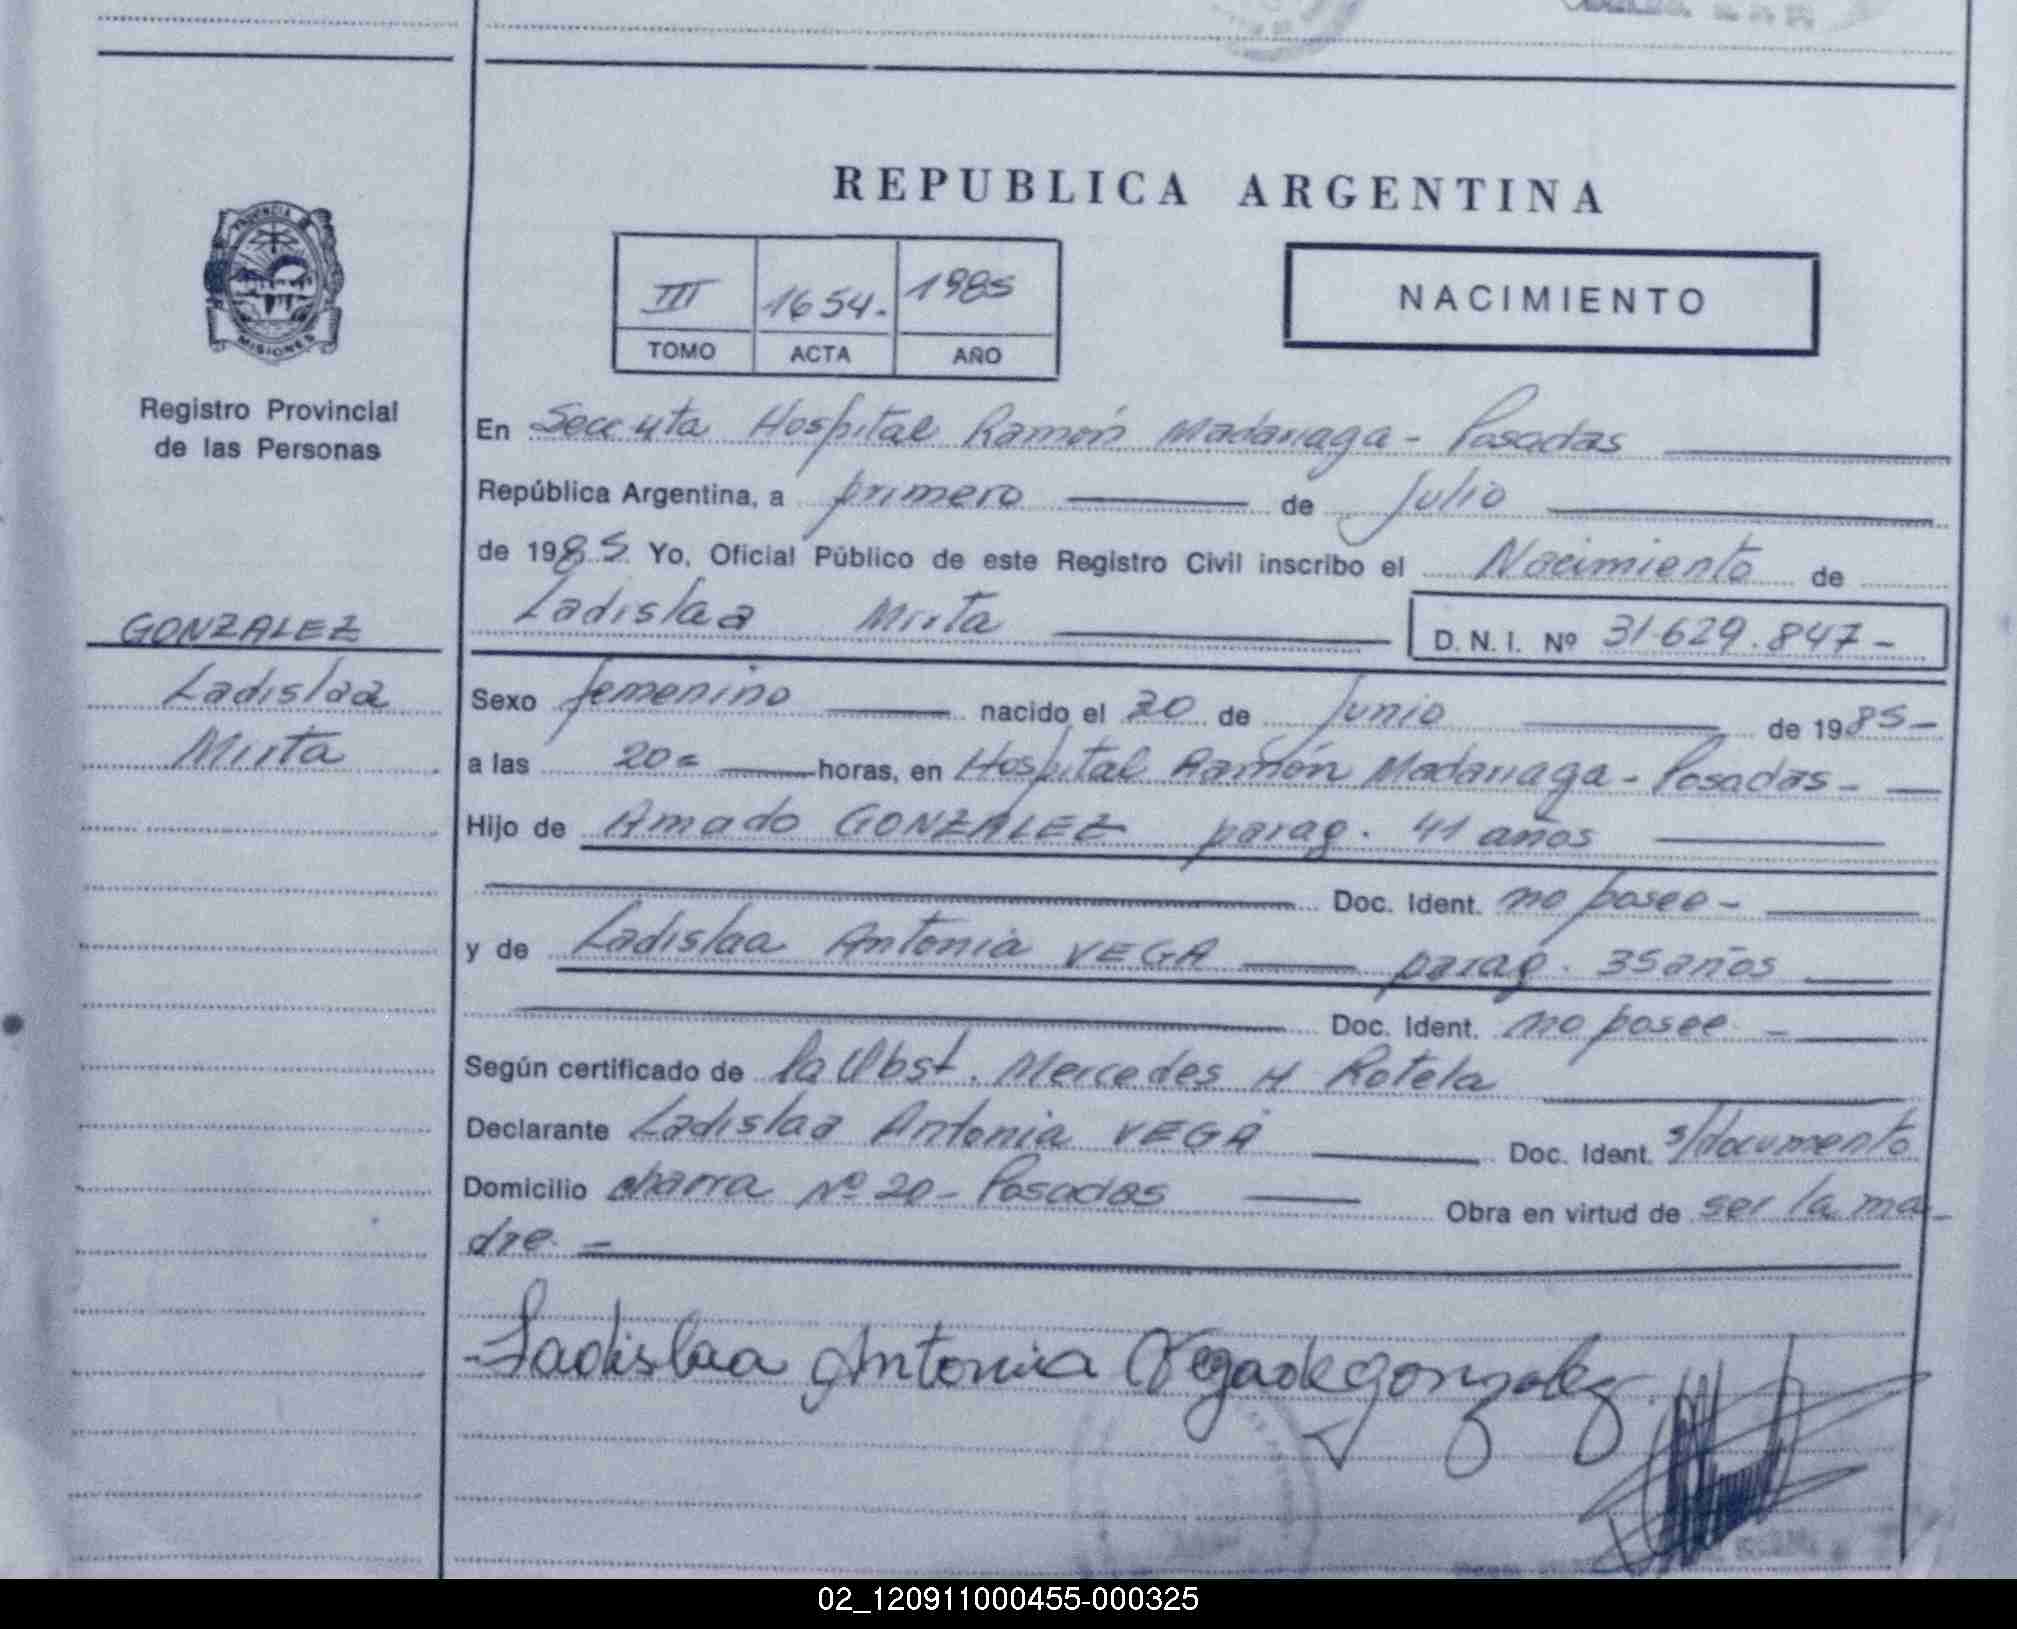 REPUBLICA ARGENTINA
PROVINCIA DE
MISIONES
Registro Provincial
de las Personas
III 1654. 1985
TOMO ACTA AÑO
NACIMIENTO
En Secc 4ta Hospital Ramón Madariaga - Posadas
República Argentina, a primero de Julio
de 1985 Yo, Oficial Público de este Registro Civil inscribo el Nacimiento de
Ladislaa Mirta D. N. I. Nº 31.629.847-
GONZALEZ
Ladislaa
Mirta
Sexo femenino nacido el 20 de Junio de 1985-
a las 20= horas, en Hospital Ramón Madariaga - Posadas-
Hijo de Amado GONZALEZ parag. 41 años
Doc. Ident. no posee-
y de Ladislaa Antonia VEGA parag. 35 años
Doc. Ident. no posee-
Según certificado de la Obst. Mercedes H Rotela
Declarante Ladislaa Antonia VEGA Doc. Ident. s/documento
Domicilio charra Nº 20- Posadas Obra en virtud de ser la ma-
dre-
Ladislaa Antonia Vega de gonzalez
02_120911000455-000325